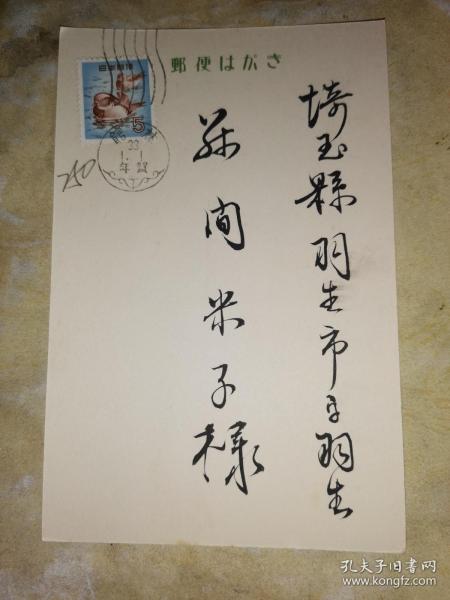 郵便はがき
日本郵便
5
33
1. 1
年賀
埼玉縣羽生市下羽生
間米子様
孔夫子旧书网
www.kongfz.com